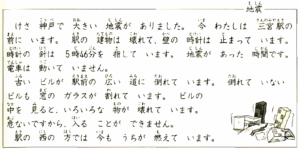 地震
けさ 神戸で 大きい 地震が ありました。 今 わたしは 三宮駅の
前に います。 駅の 建物は 壊れて、壁の 時計は 止まって います。
時計の 針は 5時46分を 指して います。 地震が あった 時間です。
電車は 動いて いません。
古い ビルが 駅前の 広い 道に 倒れて います。 倒れて いない
ビルも 窓の ガラスが 割れて います。 ビルの
中を 見ると、いろいろな 物が 壊れて います。
危ないですから、入る ことが できません。
駅の 西の 方では 今も うちが 燃えて います。